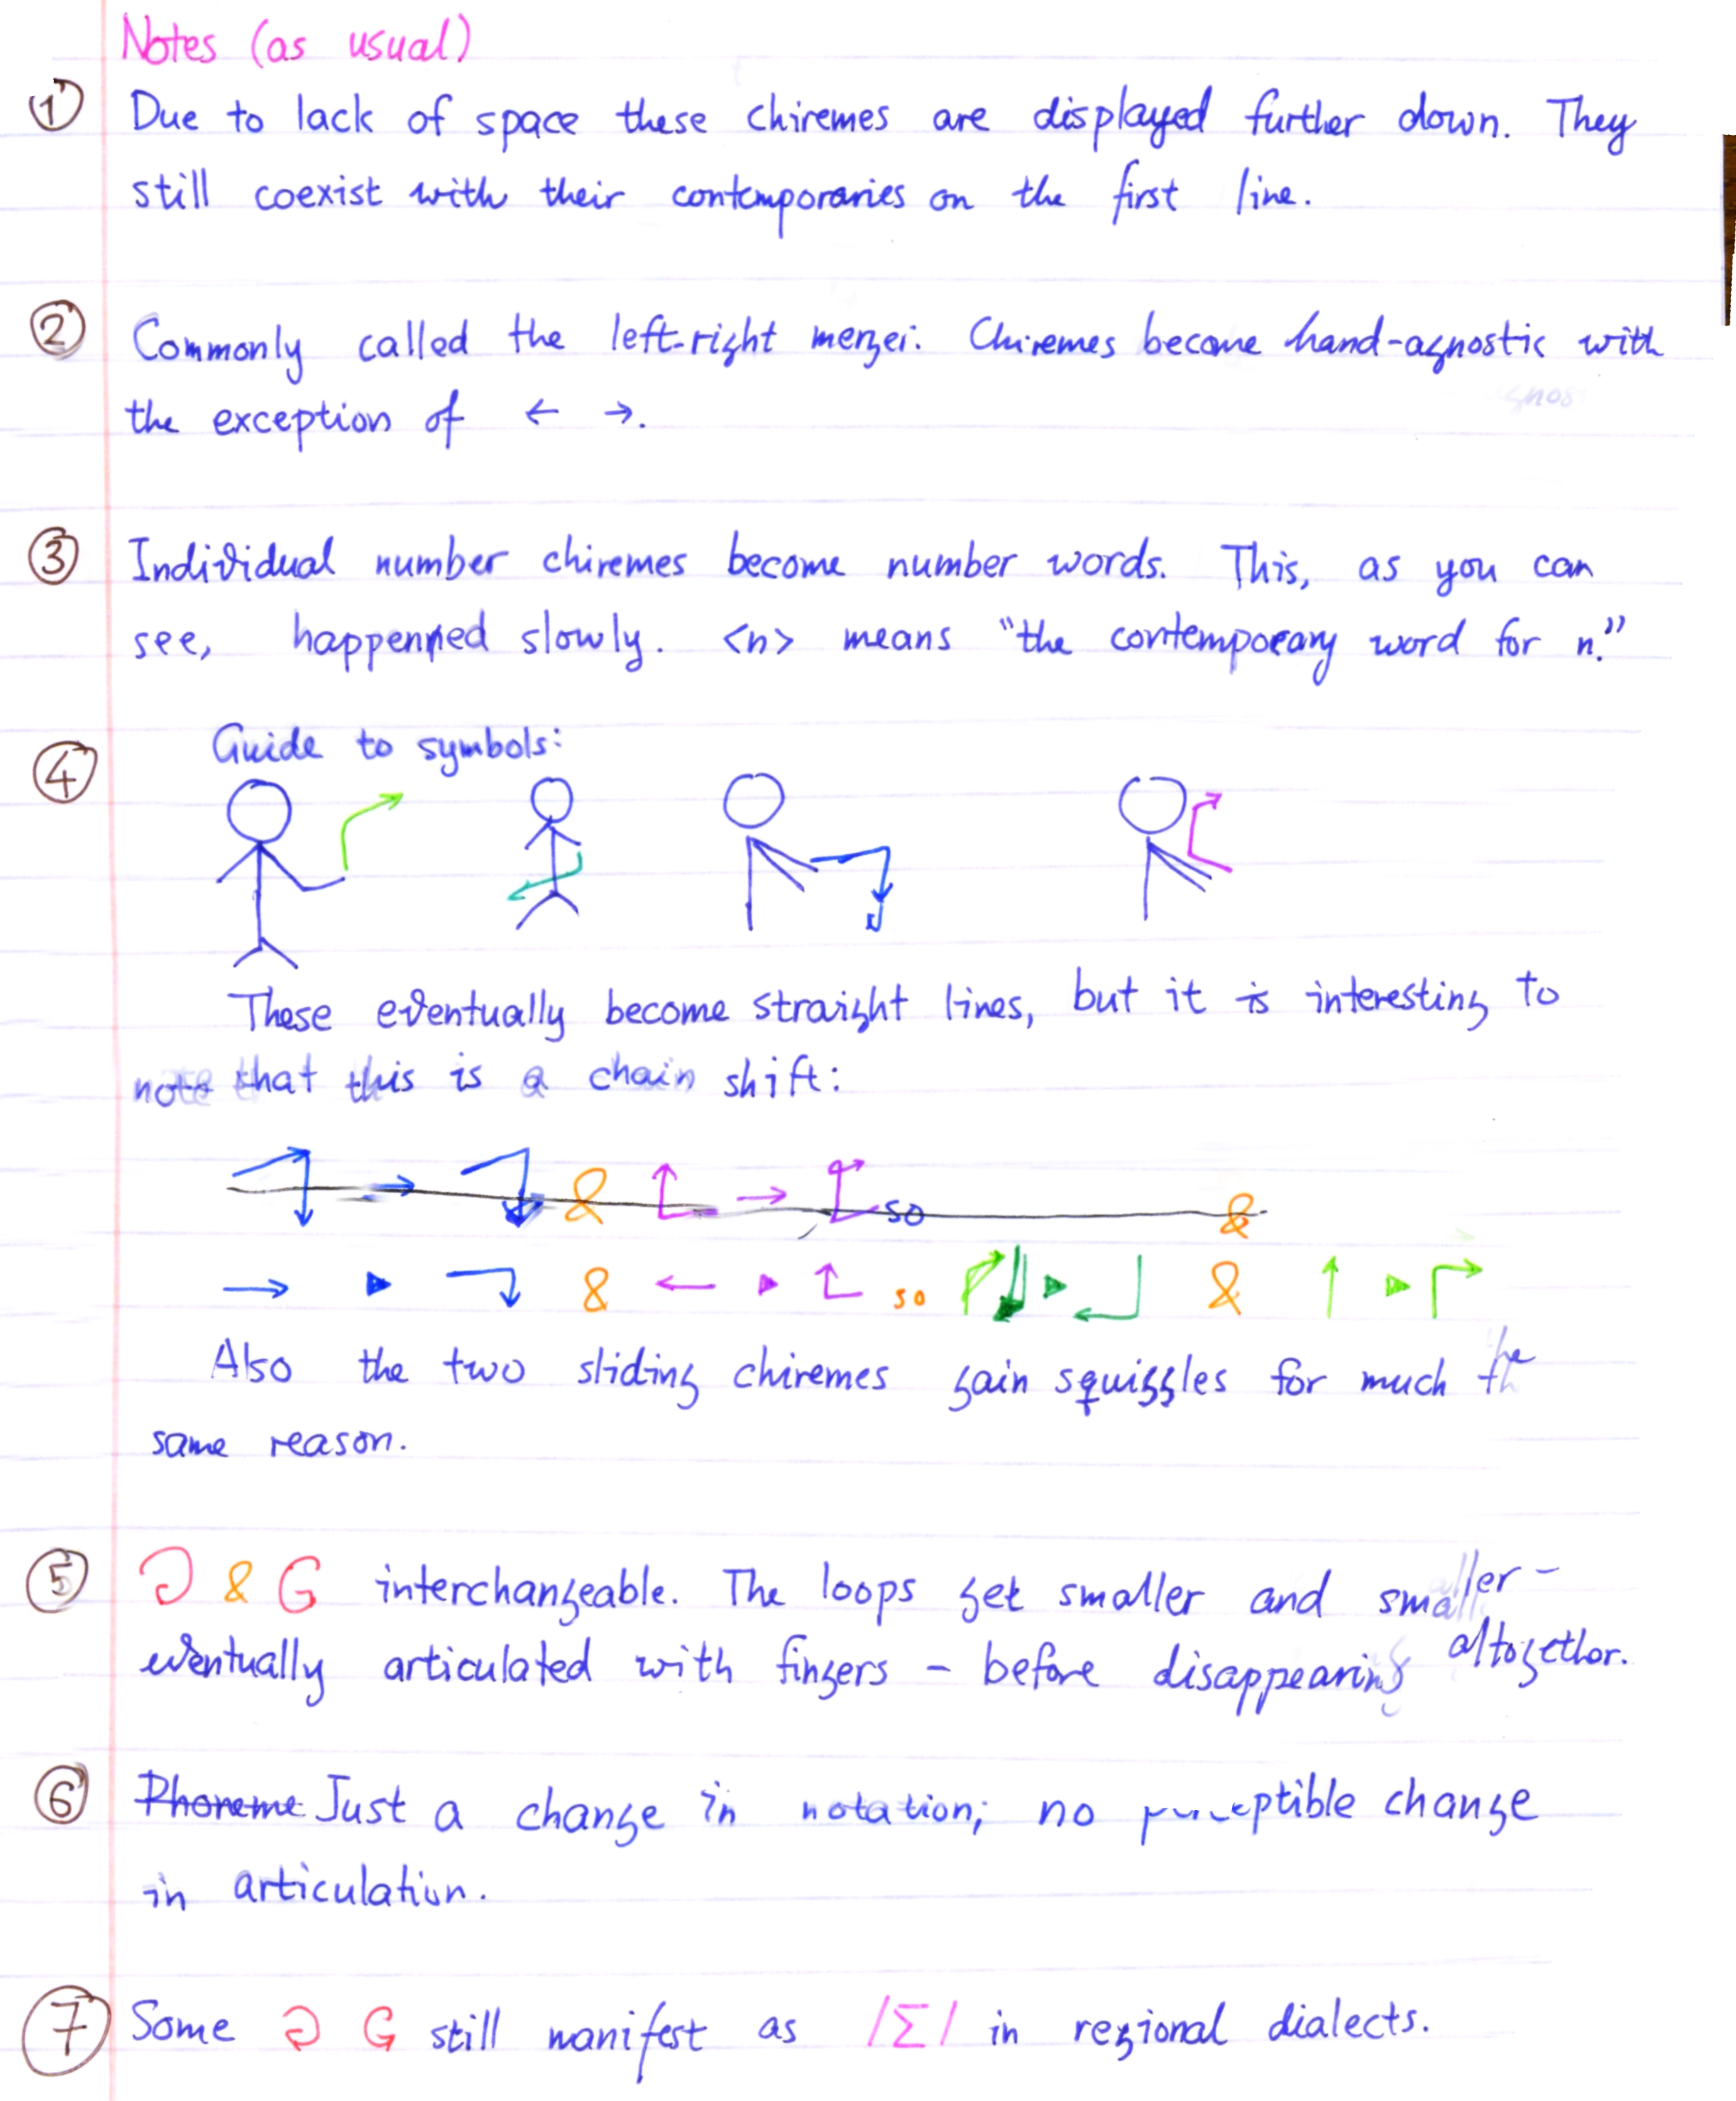 Notes (as usual)
① Due to lack of space these chiremes are displayed further down. They
still coexist with their contemporaries on the first line.
② Commonly called the left-right merger. Chiremes become hand-agnostic with
the exception of ← →.
③ Individual number chiremes become number words. This, as you can
see, happenned slowly. <n> means "the contemporary word for n."
④ Guide to symbols:
These eventually become straight lines, but it is interesting to
note that this is a chain shift:
→ & → so &
→ ▶ & ← ▶ so ▶ & ↑ ▶
Also the two sliding chiremes gain squiggles for much the
same reason.
⑤ & G interchangeable. The loops get smaller and smaller –
eventually articulated with fingers – before disappearing altogether.
⑥ Phoneme Just a change in notation; no perceptible change
in articulation.
⑦ Some G still manifest as /Σ/ in regional dialects.